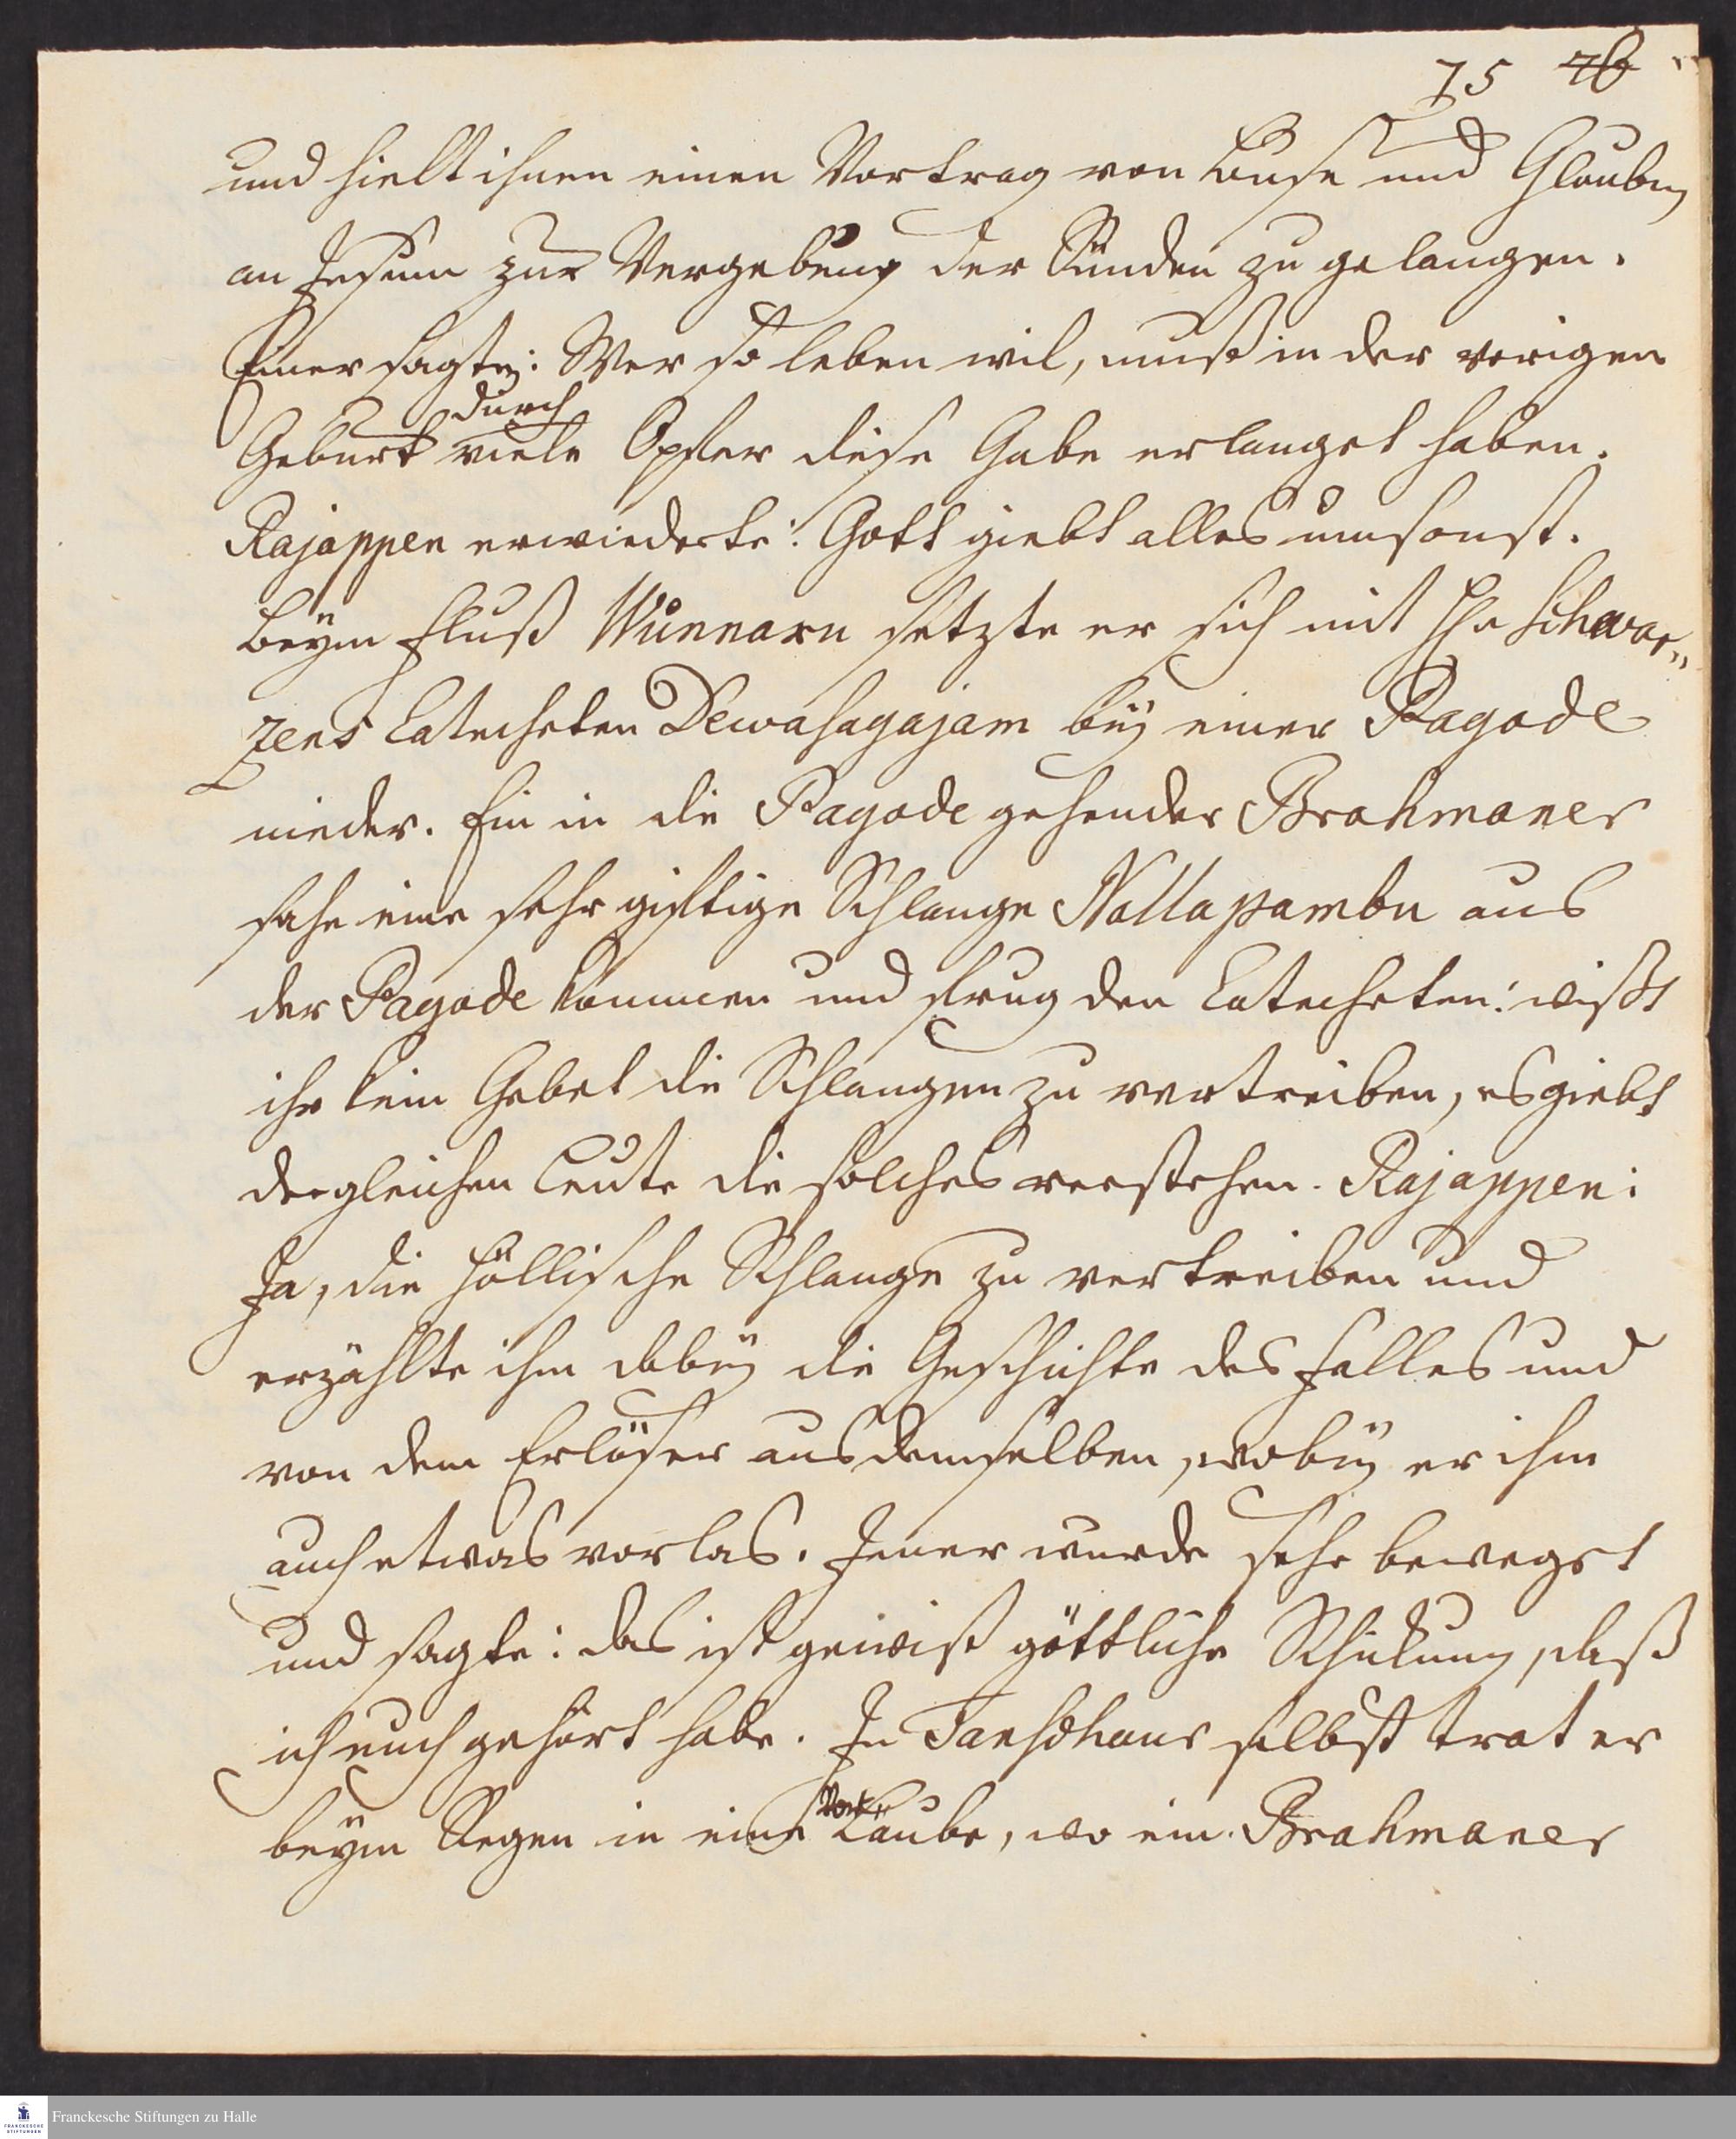 75 76
und hielt ihnen einen Vortrag von Buse und Glauben
an Jesum zur Vergebung der Sünden zu gelangen.
Einer sagte: Wer so leben wil, muß in der vorigen
durch
Geburt viele Opfer diese Gabe erlanget haben.
Rajappen erwiederte: Gott giebt alles umsonst.
Beym Fluß Wünnaru setzte er sich mit Hr Schwar„
zens Catecheten Dewasagajam bey einer Pagode
nieder. Ein in die Pagode gehender Brahmaner
sahe eine sehr giftige Schlange Nallapambu aus
der Pagode kommen und frug den Catecheten: wißt
ihr kein Gebet die Schlangen zu vertreiben, es giebt
dergleichen Leute die solches verstehen. Rajappen:
Ja, die höllische Schlange zu vertreiben und
erzählte ihm dabey die Geschichte des Falles und
von dem Erlöser aus demselben, wobey er ihm
auch etwas vorlas. Jener wurde sehr beweget
und sagte: das ist gewiß göttliche Schikung, daß
ich euch gehört habe. In Tanschaur selbst trat er
Vor
beym Regen in eine Laube, wo ein Brahmaner
Franckesche Stiftungen zu Halle
FRANCKESCHE
STIFTUNGEN